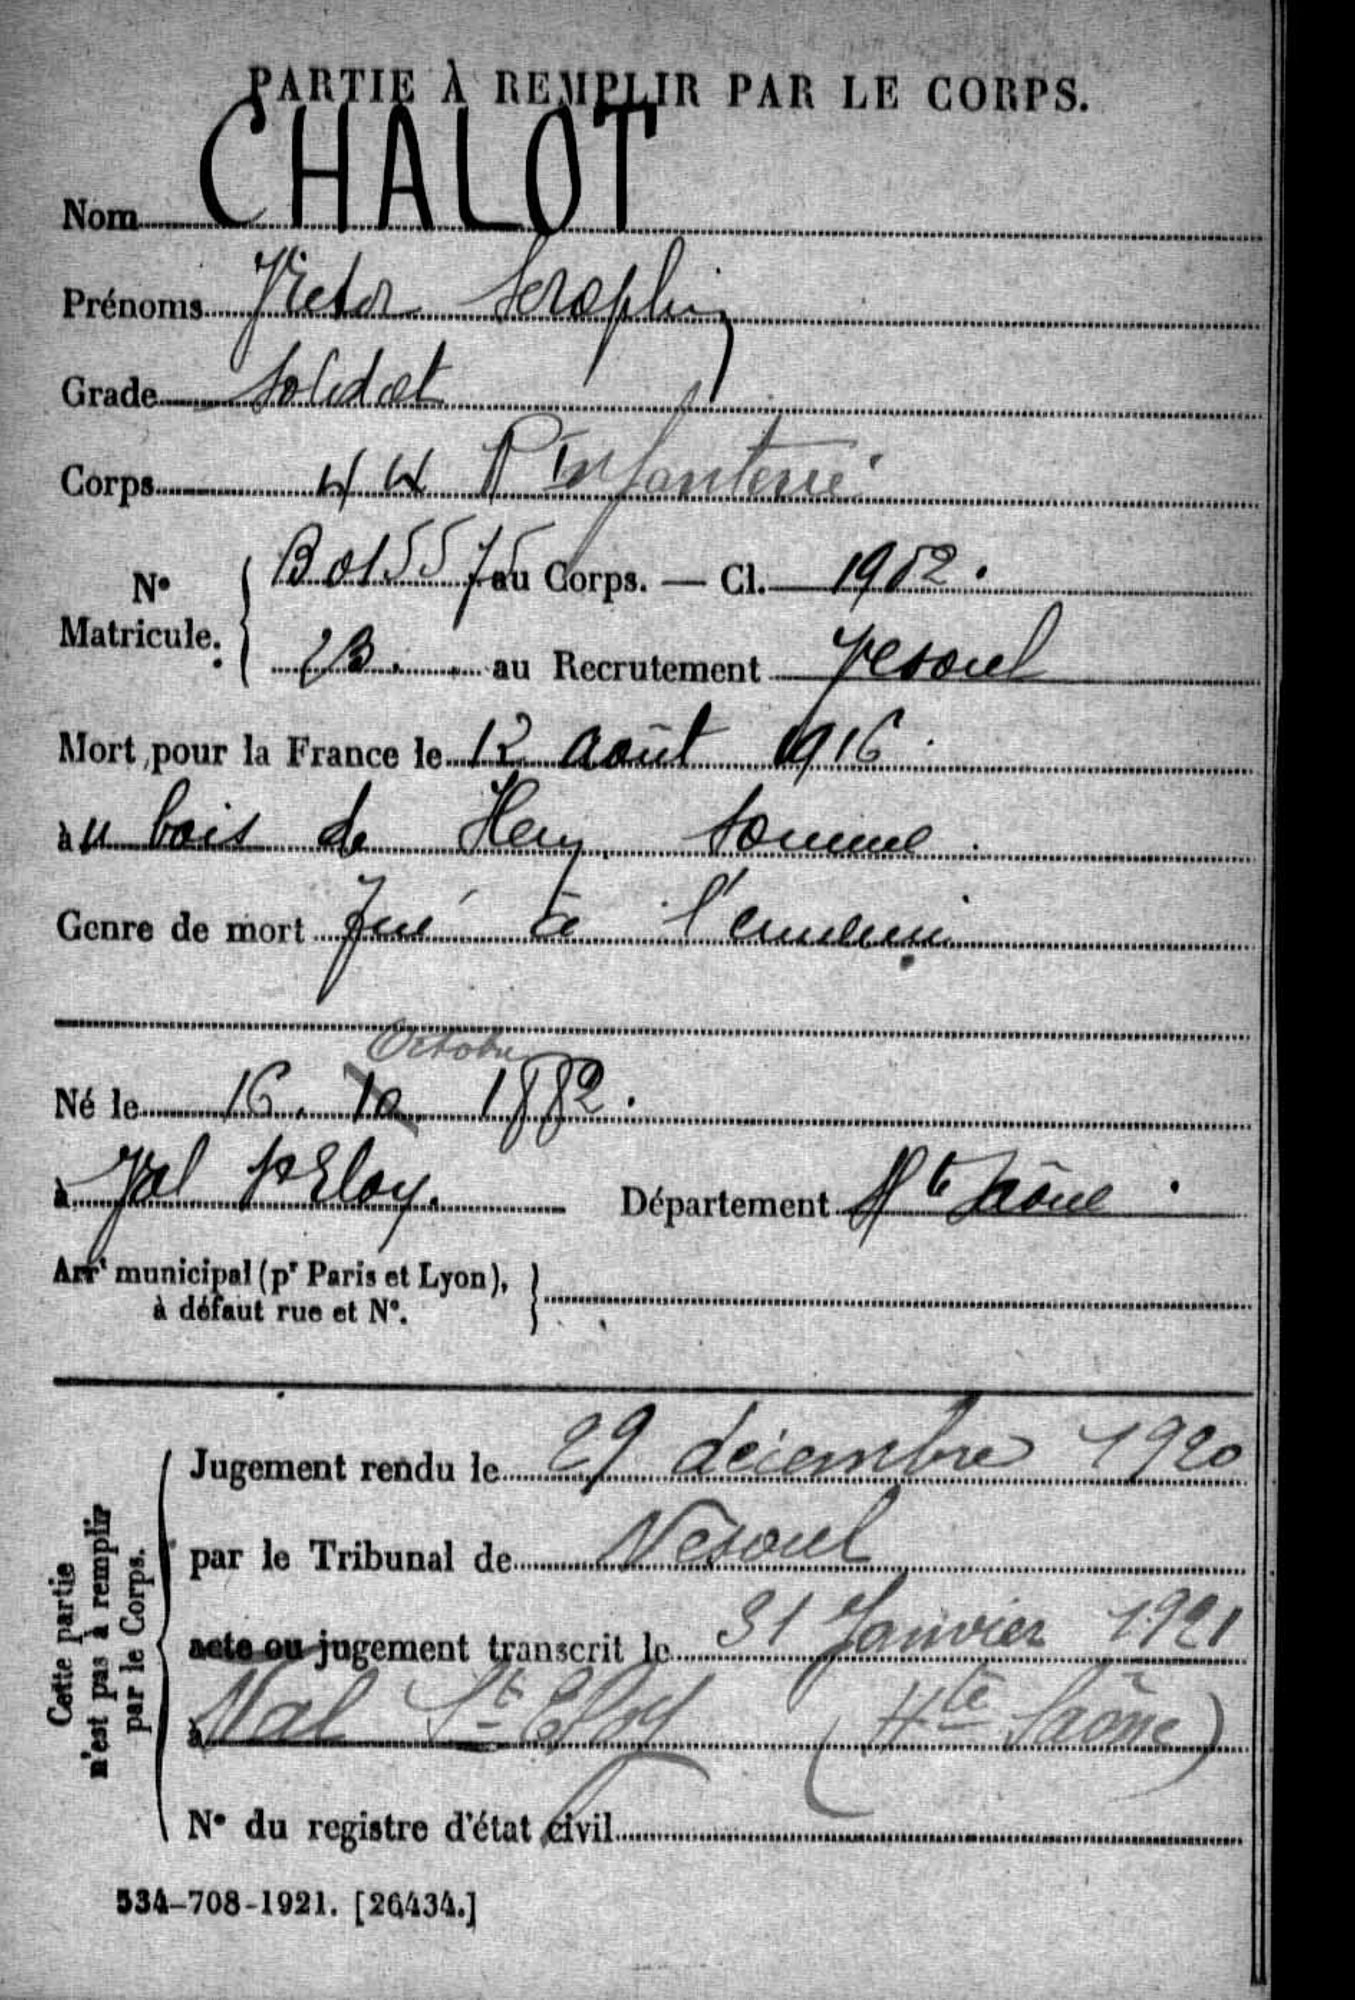 PARTIE À REMPLIR PAR LE CORPS.
Nom CHALOT
Prénoms Victor Seraphin
Grade Soldat
Corps 44 R Infanterie
N° Matricule. { B 015575 au Corps. — Cl. 1902.
23. au Recrutement Vesoul
Mort pour la France le 12 août 1916.
au bois de Hem Somme.
Genre de mort Tué à l'ennemi
Octobre
Né le 16. 10 1882.
à Val St Eloy. Département Hte Saône.
Arrt municipal (pr Paris et Lyon), }
à défaut rue et N°.
Cette partie
n'est pas à remplir
par le Corps.
Jugement rendu le 29 décembre 1920
par le Tribunal de Vesoul
acte ou jugement transcrit le 31 Janvier 1921
à Val St Eloy (Hte Saône)
N° du registre d'état civil
534-708-1921. [26434.]